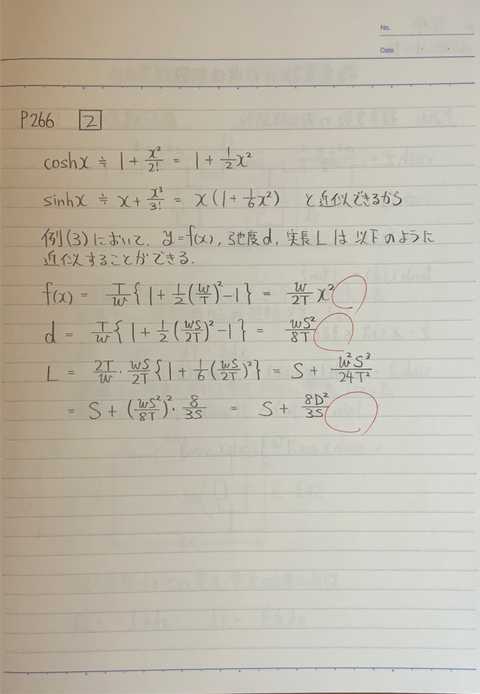 No.
Date
P266 2
coshx ≒ 1 + x²/2! = 1 + 1/2 x²
sinhx ≒ x + x³/3! = x(1 + 1/6 x²) と近似できるから
例(3)において、y=f(x), 弛度d, 実長Lは以下のように
近似することができる.
f(x) = T/W{1 + 1/2(W/T)² -1} = W/2T x²
d = T/W{1 + 1/2(WS/2T)² -1} = WS²/8T
L = 2T/W · WS/2T{1 + 1/6(WS/2T)²} = S + W²S³/24T²
= S + (WS²/8T)² · 8/3S = S + 8D²/3S